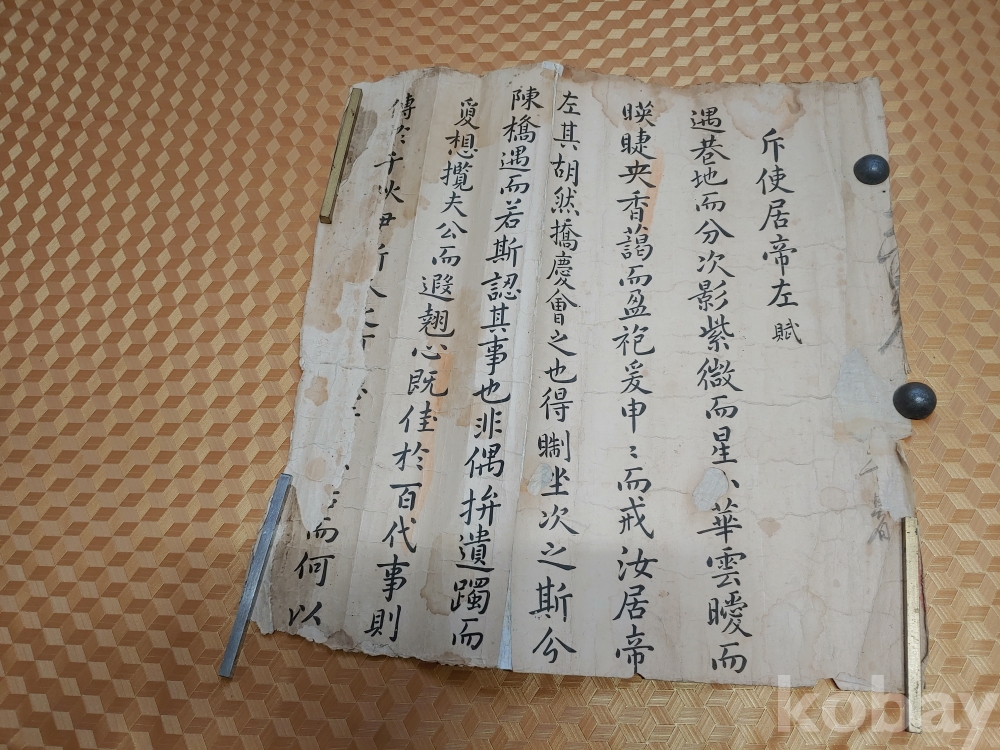 斥使居帝左 賦
遇巷地而分次影紫微而星〻華雲曖而
暎睫央香藹而盈袍爰申〻而戒汝居帝
左其胡然撟慶會之也得瞓坐次之斯分
陳橋遇而若斯認其事也非偶拚遺躅而
夐想攬夫公而遐翹心既佳於百代事則
傳於 而何以
kobay